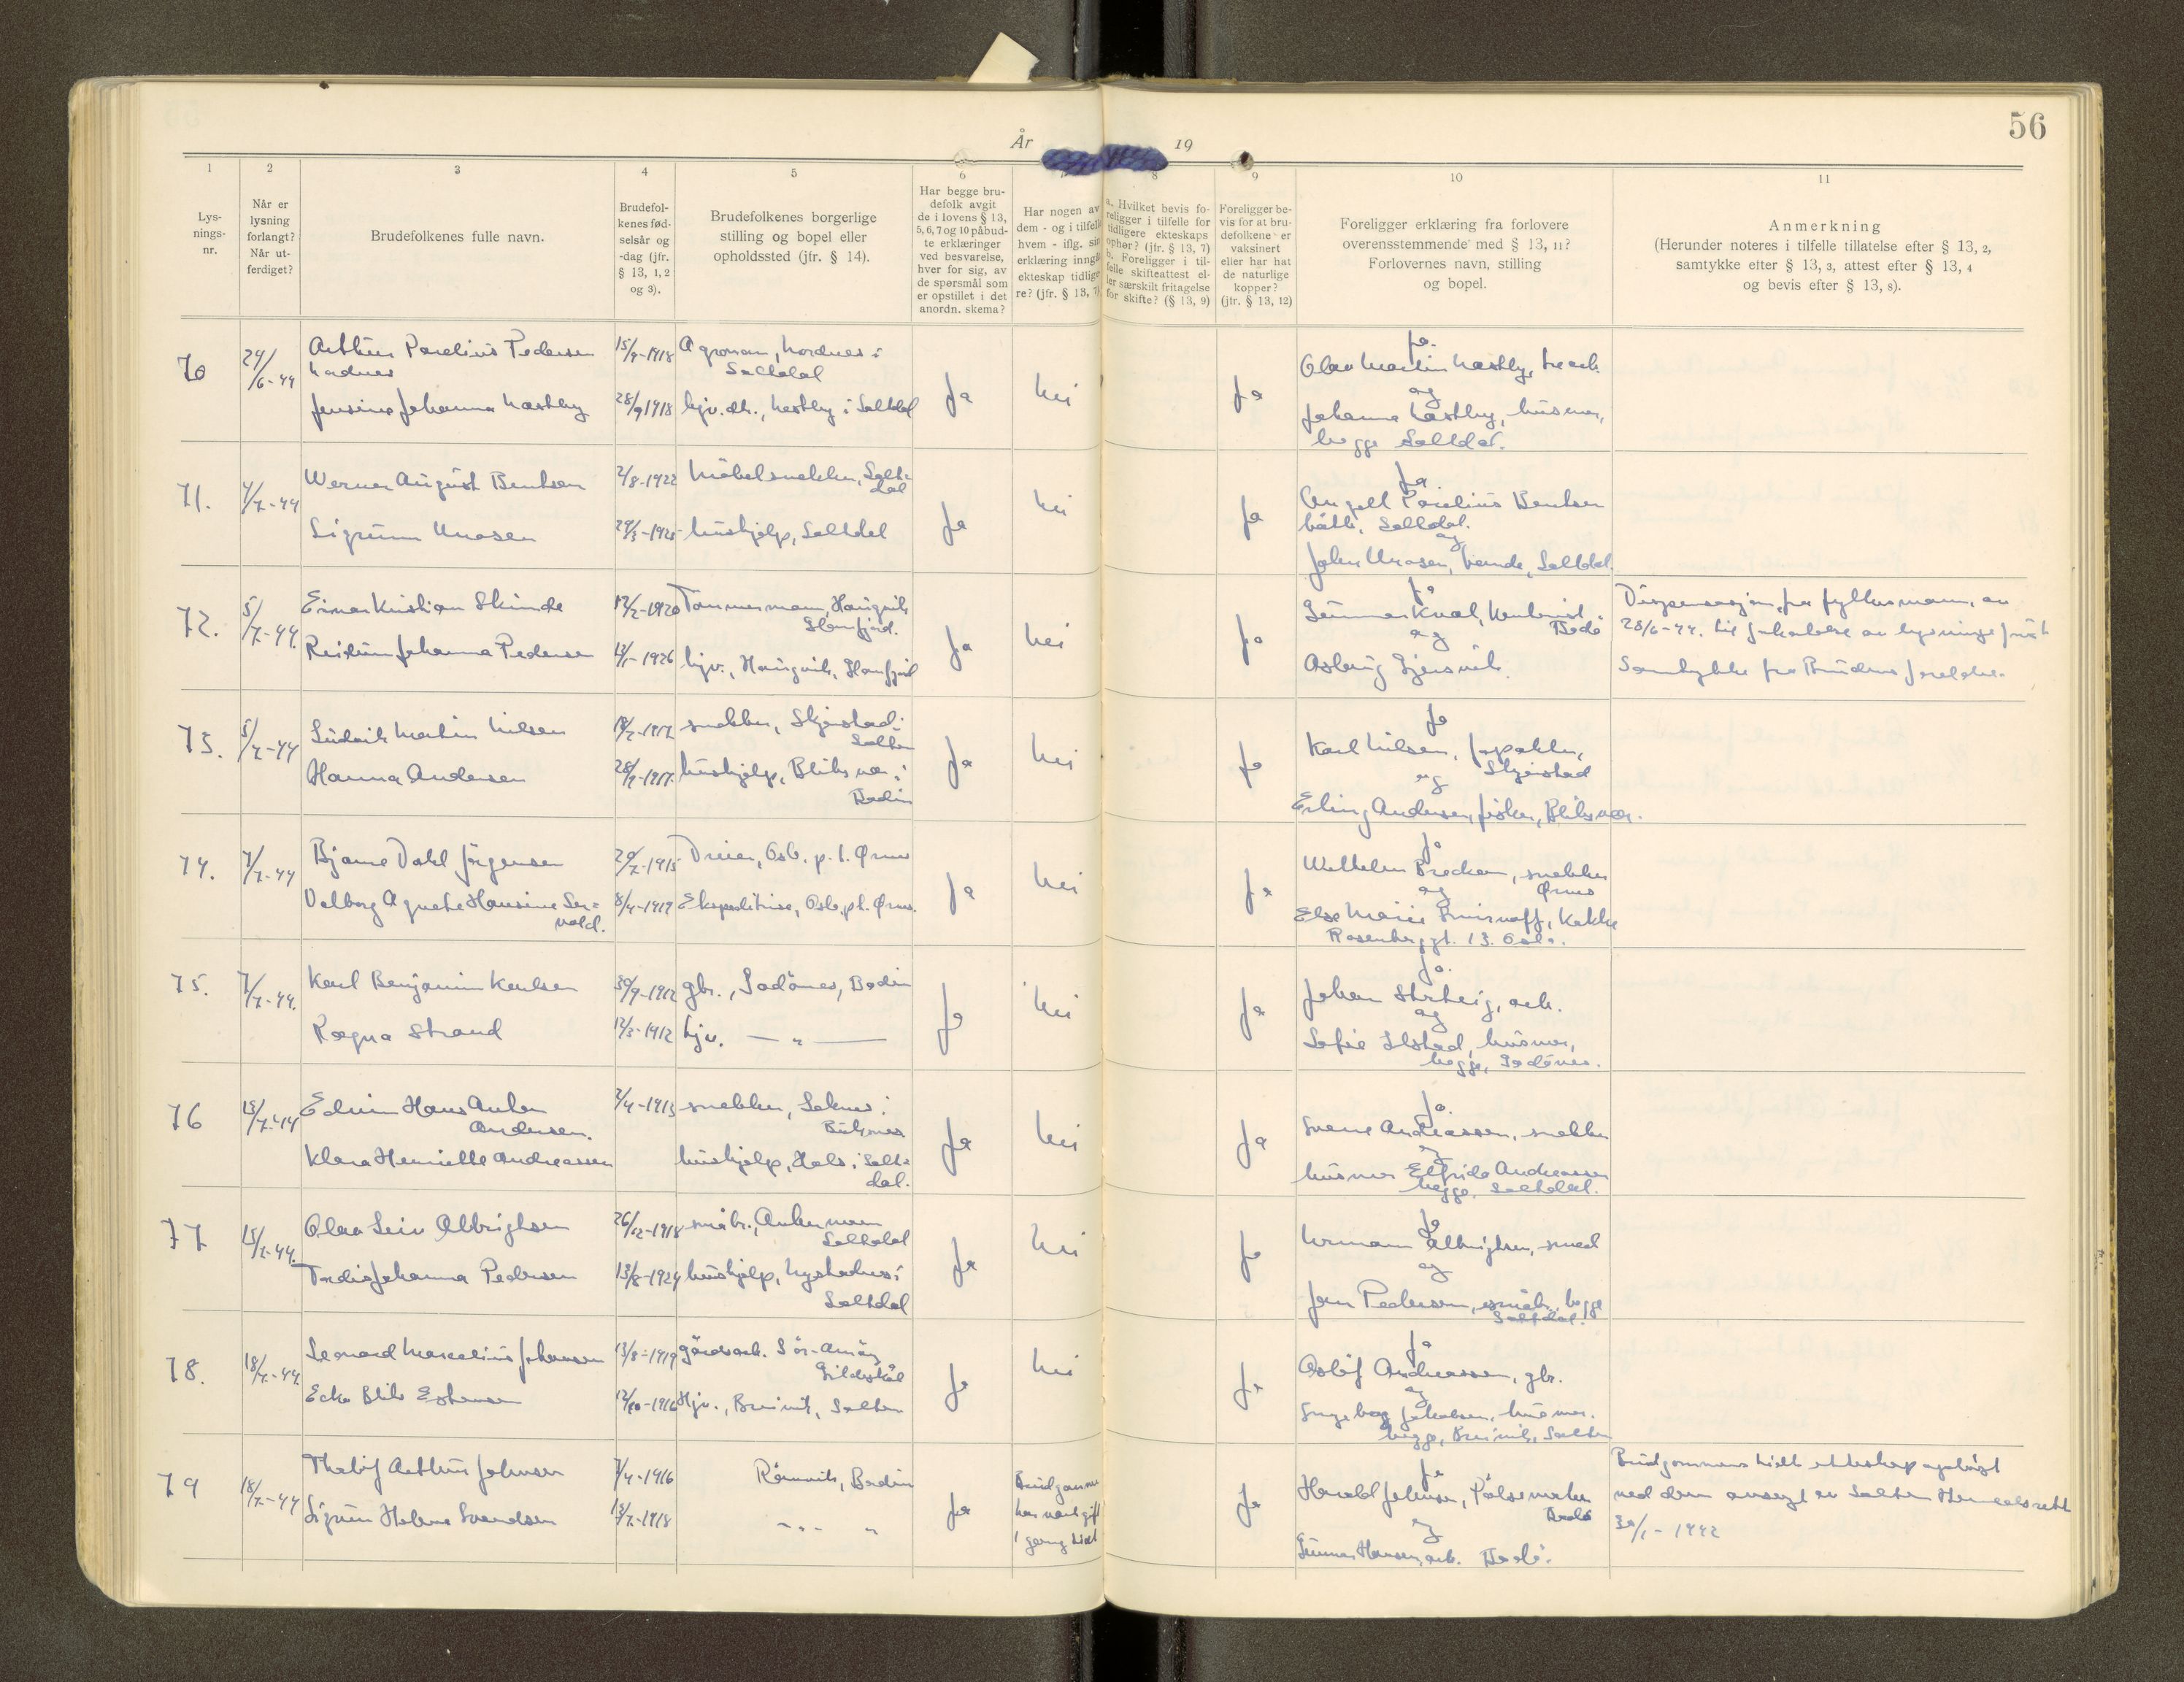 56
År 19
1
2
3
4
5
6
8
9
10
11
Lys-
nings-
nr.
Når er
lysning
forlangt?
Når ut-
ferdiget?
Brudefolkenes fulle navn.
Brudefol-
kenes fød-
selsår og
-dag (jfr.
§ 13, 1, 2
og 3).
Brudefolkenes borgerlige
stilling og bopel eller
opholdssted (jfr. § 14).
Har begge bru-
defolk avgit
de i lovens § 13,
5, 6, 7 og 10 påbud-
te erklæringer
ved besvarelse,
hver for sig, av
de spørsmål som
er opstillet i det
anordn. skema?
Har nogen av
dem - og i tilfelle
hvem - iflg. sin
erklæring inngå
ekteskap tidlige
re? (jfr. § 13, 7)
a. Hvilket bevis fo-
religger i tilfelle for
tidligere ekteskaps
ophør? (jfr. § 13, 7)
b. Foreligger i til-
felle skifteattest el-
ler særskilt fritagelse
for skifte? (§ 13, 9)
Foreligger be-
vis for at bru-
defolkene er
vaksinert
eller har hat
de naturlige
kopper?
(jfr. § 13, 12)
Foreligger erklæring fra forlovere
overensstemmende med § 13, 11?
Forlovernes navn, stilling
og bopel.
Anmerkning
(Herunder noteres i tilfelle tillatelse efter § 13, 2,
samtykke etter § 13, 3, attest efter § 13, 4
og bevis efter § 13, 8).
70
24/6-44
Arthur Parelius Pedersen
Nordnes
Jensine Johanna Næstby
15/9-1918
28/9 1918
Agronom, Nordnes i
Saltdal
hjv. dt., Næstby i Saltdal
Ja
Nei
Ja
Ja.
Olav Martin Næstby,
og
Johanna Næstby, husmor,
begge Saltdal.
71.
4/7-44
Werner August Bentsen
Sigrunn Unosen
2/8-1922
Møbelsnekker, Salt=
dal
hushjelp, Saltdal
Ja
Nei
Ja
Ja
Angell Parelius Bentsen
Saltdal.
og
John Unosen, Saltdal.
72.
5/7-44.
Einar Kristian Skinde
Reidun Johanna Pedersen
12/2-1920
1926
Tømmermann, Haugvik
Glomfjord.
hjv., Haugvik, Glomfjord
Ja
Nei
Ja
Ja
Bodø
og
Asbjørg
Dispensasjon fra fylkesmann, av
28/6-44. til forkortelse av lysningsfrist
Samtykke fra Brudens foreldre.
73.
5/7-44
Ludvik Martin Nilsen
Hanna Andersen
18/7-1917
28/9-1917.
snekker, Skjerstad i
Salten
hushjelp, Bliksvær i
Bodin
Ja
Nei
Ja
Ja
Karl Nilsen, forpakter,
Skjerstad
og
Erling Andersen, fisker, Bliksvær.
74.
7/7-44
Bjarne Dahl Jörgensen
Valborg Agnethe Hansine Ser=
vold.
20/7-1915
8/4-1919
Dreier, Oslo. p. t. Ørnes
Ekspeditrise, Oslo. pt. Ørnes.
Ja
Nei
Ja
Ja
Wilhelm Bredesen, snekker
Ørnes
og
Else Marie Smirnoff, Kokke
Rosenborggt. 13. Oslo.
75.
7/7-44.
Karl Benjamin Karlsen
Ragna Strand
30/9-1912
12/3-1912
gbr., Godönes, Bodin
hjv. — " —
Ja
Nei
Ja
Ja.
Johan arb.
og
Sofie husmor,
begge, Godönes.
76
15/7-44
Edvin Hans Anker
Andersen.
Klara Henriette Andreassen
2/4-1913
snekker, Leknes i
Buksnes
hushjelp, Hals i Salt=
dal.
Ja
Nei
Ja
Ja.
Sverre Andreassen, snekker
og
husmor Elfrida Andreassen
begge, Saltdal.
77
15/7-44.
Olav Leiv Albrigtsen
Tordis Johanna Pedersen
26/12-1918
13/8-1924
småbr.,
Saltdal
hushjelp, i
Saltdal
Ja
Nei
Ja
Ja
Hermann Albrigtsen, smed
og
Jon Pedersen, småbr., begge
Saltdal.
78.
18/7-44.
Leonard Marcelius Johansen
Blix Estensen
13/8-1919
12/10-1916
gårdsarb. Sör-Arnöy
Gildeskål
Hjv., Breivik, Salten
Ja
Nei
Ja
Ja
Asløf Andreassen, gbr.
og
Ingeborg Jakobsen, husmor.
begge, Breivik, Salten
79
18/7-44
Thoralf Arthur Johnsen
Sigrun Helene Svendsen
7/4-1916
13/7-1918
Rönvik, Bodin
— " — "
Ja
Brudgommen
har vært gift
1 gang tidl
Ja
Ja
Harald Johnsen, Pølsemaker
Bodö
og
Gunnar Hansen, arb. Bodö.
Brudgommens tidl. ekteskap opløst
ved dom avsagt av Salten Herredsrett
30/1-1942